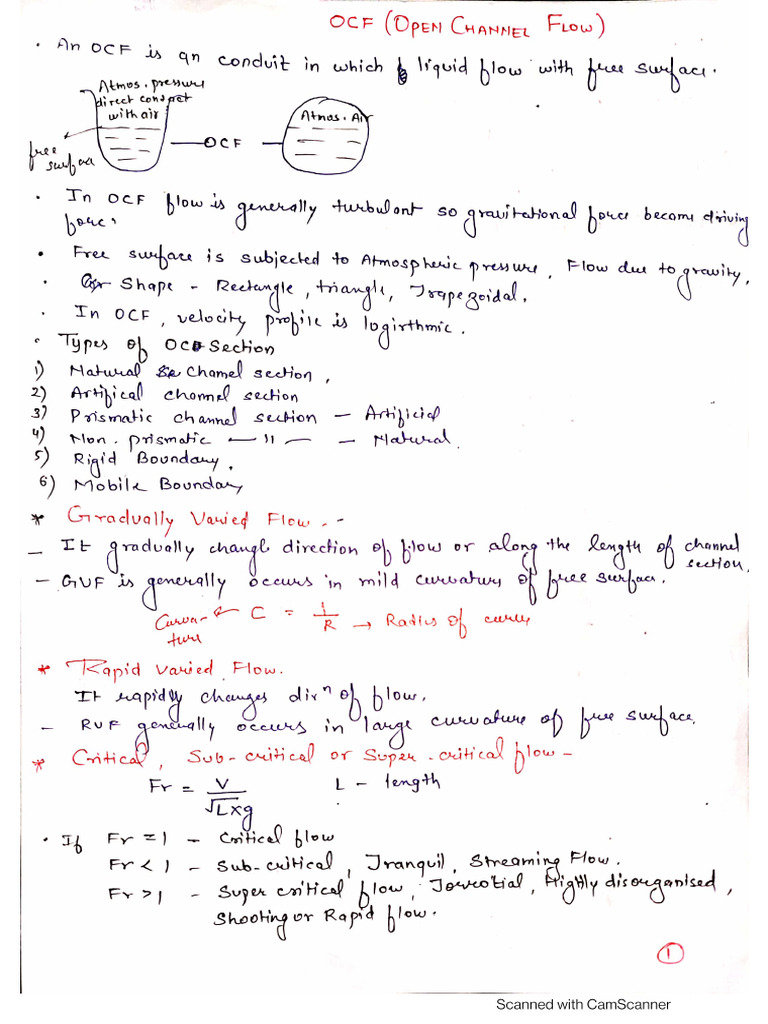 OCF (OPEN CHANNEL FLOW)
• An OCF is an conduit in which liquid flow with free surface.
Atmos. pressure
direct contact
with air
free
surface
OCF
Atmos. Air
• In OCF flow is generally turbulant so gravitational force become driving
force.
• Free surface is subjected to Atmospheric pressure, Flow due to gravity,
• Shape - Rectangle, triangle, Trapezoidal.
• In OCF, velocity profile is logirthmic.
• Types of OCF Section
1) Natural Channel section,
2) Artifical channel section
3) Prismatic channel section — Artificial
4) Non. prismatic — 〃 — — Natural.
5) Rigid Boundary.
6) Mobile Boundary
* Gradually Varied Flow. -
— It gradually change direction of flow or along the length of channel
section.
— GVF is generally occurs in mild curvature of free surface.
Curva-
ture ← C = 1/R → Radius of curve
* Rapid Varied Flow.
It rapidly changes dirⁿ of flow.
— RVF generally occurs in large curvature of free surface.
* Critical, Sub-critical or Super-critical flow -
Fr = V/√L×g L - length
• If Fr = 1 - Critical flow
Fr < 1 - Sub-critical, Tranquil, Streaming Flow.
Fr > 1 - Super critical flow, Highly disorganised,
Shooting or Rapid flow.
1
Scanned with CamScanner